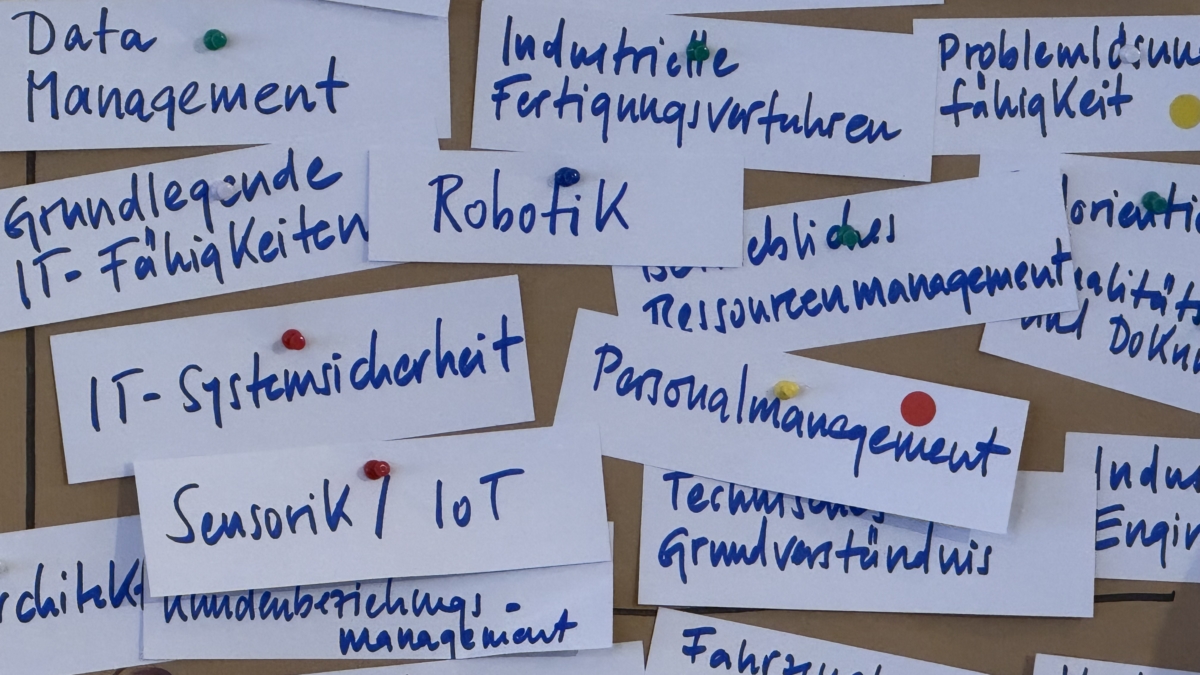 Data
Management
Industrielle
Fertigungsverfahren
Problemlösun
fähigkeit
Grundlegende
IT-Fähigkeiten
Robotik
ebliches
Ressourcenmanagement
lorienti
alitäts
und Dokum
IT-Systemsicherheit
Personalmanagement
Sensorik / IoT
Technisches
Grundverständnis
Indus
Engin
rchitekt
Kundenbeziehungs-
management
Fahrzeug